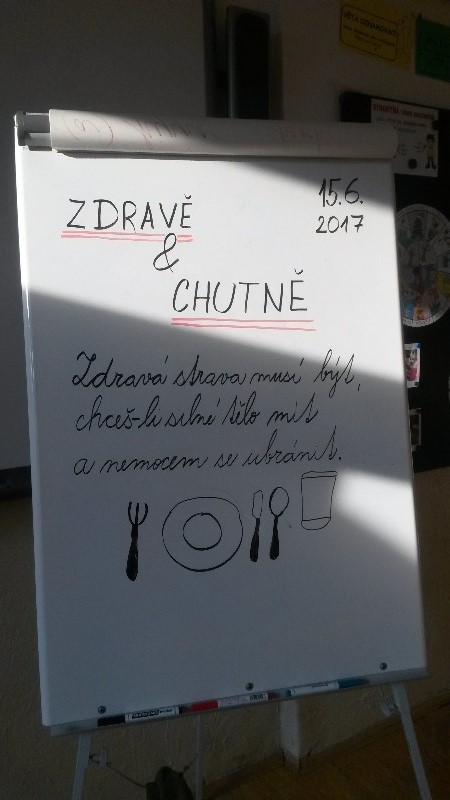 15.6.
2017
ZDRAVĚ
&
CHUTNĚ
Zdravá strava musí být,
chceš-li silné tělo mít
a nemocem se ubránit.